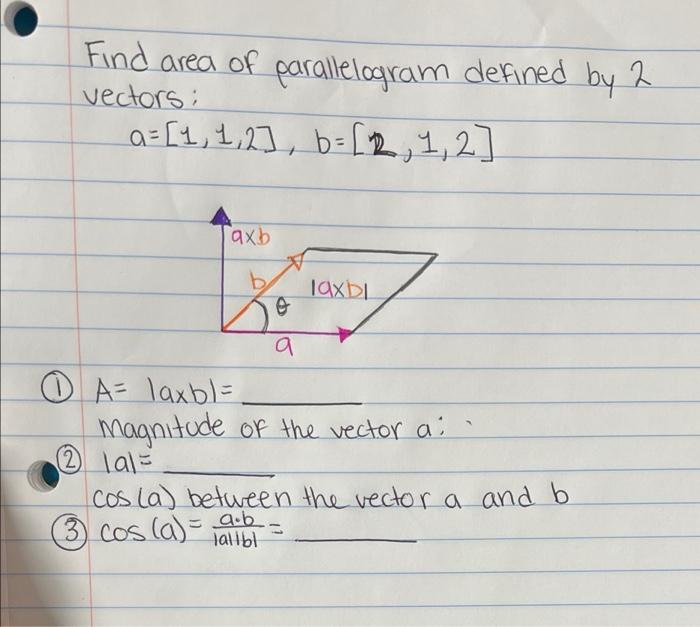 Find area of parallelogram defined by 2
vectors:
a=[1,1,2], b=[2,1,2]
axb
b
|axb|
θ
a
① A= |axb|= ________
magnitude of the vector a:
② |a|= ________
cos(a) between the vector a and b
③ cos(a)= a·b/|a||b| = ________